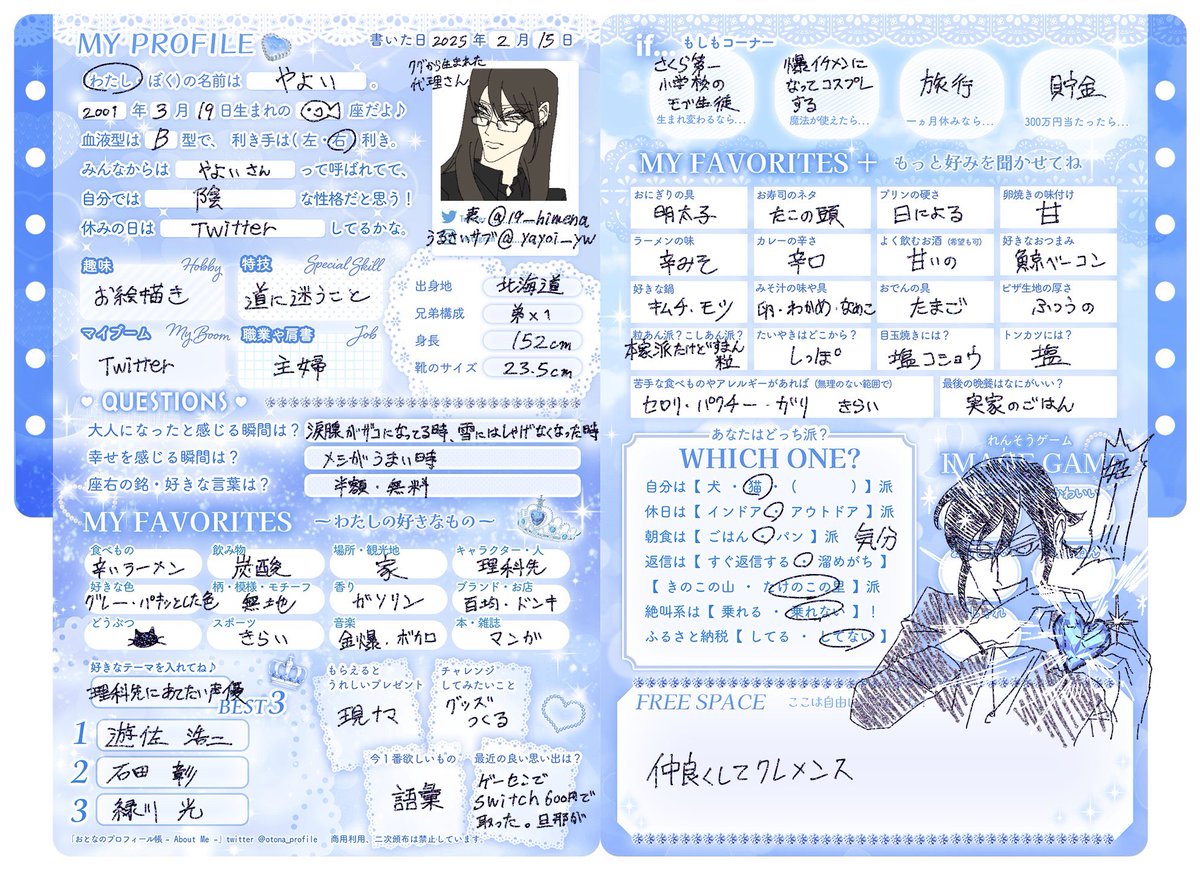 MY PROFILE
書いた日 2025 年 2 月 15 日
(わたし・ぼく)の名前は やよい 。
2001 年 3 月 19 日生まれの 座だよ♪
血液型は B 型で、 利き手は(左・右)利き。
みんなからは やよいさん って呼ばれてて、
自分では 陰 な性格だと思う!
休みの日は Twitter してるかな。
ググから生まれた
代理さん
表 @19_himena
うるさいサブ @_yayoi_yw
趣味 Hobby
お絵描き
特技 Special Skill
道に迷うこと
マイブーム My Boom
Twitter
職業や肩書 Job
主婦
出身地 北海道
兄弟構成 弟×1
身長 152cm
靴のサイズ 23.5cm
QUESTIONS
大人になったと感じる瞬間は? 涙腺がザコになってる時、雪にはしゃげなくなった時
幸せを感じる瞬間は? メシがうまい時
座右の銘・好きな言葉は? 半額・無料
MY FAVORITES ~わたしの好きなもの~
食べもの 辛いラーメン
飲み物 炭酸
場所・観光地 家
キャラクター・人 理科先
好きな色 グレー・パキッとした色
柄・模様・モチーフ 無地
香り ガソリン
ブランド・お店 百均・ドンキ
どうぶつ
スポーツ きらい
音楽 金爆・ボカロ
本・雑誌 マンガ
好きなテーマを入れてね♪
理科先にあてたい声優
BEST3
1 遊佐 浩二
2 石田 彰
3 緑川 光
もらえると
うれしいプレゼント
現ナマ
チャレンジ
してみたいこと
グッズ
つくる
今1番欲しいもの
語彙
最近の良い思い出は?
ゲーセンで
switch 600円で
取った。旦那が
「おとなのプロフィール帳 - About Me -」twitter @otona_profile 商用利用、二次頒布は禁止しています。
if... もしもコーナー
さくら第一
小学校の
モブ生徒
生まれ変わるなら…
爆イケメンに
なってコスプレ
する
魔法が使えたら…
旅行
一ヵ月休みなら…
貯金
300万円当たったら…
MY FAVORITES + もっと好みを聞かせてね
おにぎりの具 明太子
お寿司のネタ たこの頭
プリンの硬さ 日による
卵焼きの味付け 甘
ラーメンの味 辛みそ
カレーの辛さ 辛口
よく飲むお酒 (希望も可) 甘いの
好きなおつまみ 鯨ベーコン
好きな鍋 キムチ・モツ
みそ汁の味や具 卵・わかめ・なめこ
おでんの具 たまご
ピザ生地の厚さ ふつうの
粒あん派?こしあん派? 本家派だけどすまん
粒
たいやきはどこから? しっぽ
目玉焼きには? 塩コショウ
トンカツには? 塩
苦手な食べものやアレルギーがあれば (無理のない範囲で)
セロリ・パクチー・ガリ きらい
最後の晩餐はなにがいい?
実家のごはん
あなたはどっち派?
WHICH ONE?
自分は【 犬 ・ 猫 ・ ( ) 】派
休日は【 インドア ・ アウトドア 】派
朝食は【 ごはん ・ パン 】派 気分
返信は【 すぐ返信する ・ 溜めがち 】
【 きのこの山 ・ たけのこの里 】派
絶叫系は【 乗れる ・ 乗れない 】!
ふるさと納税【 してる ・ してない 】
れんそうゲーム
IMAGE GAME
かわいい
FREE SPACE ここは自由に
仲良くしてクレメンス